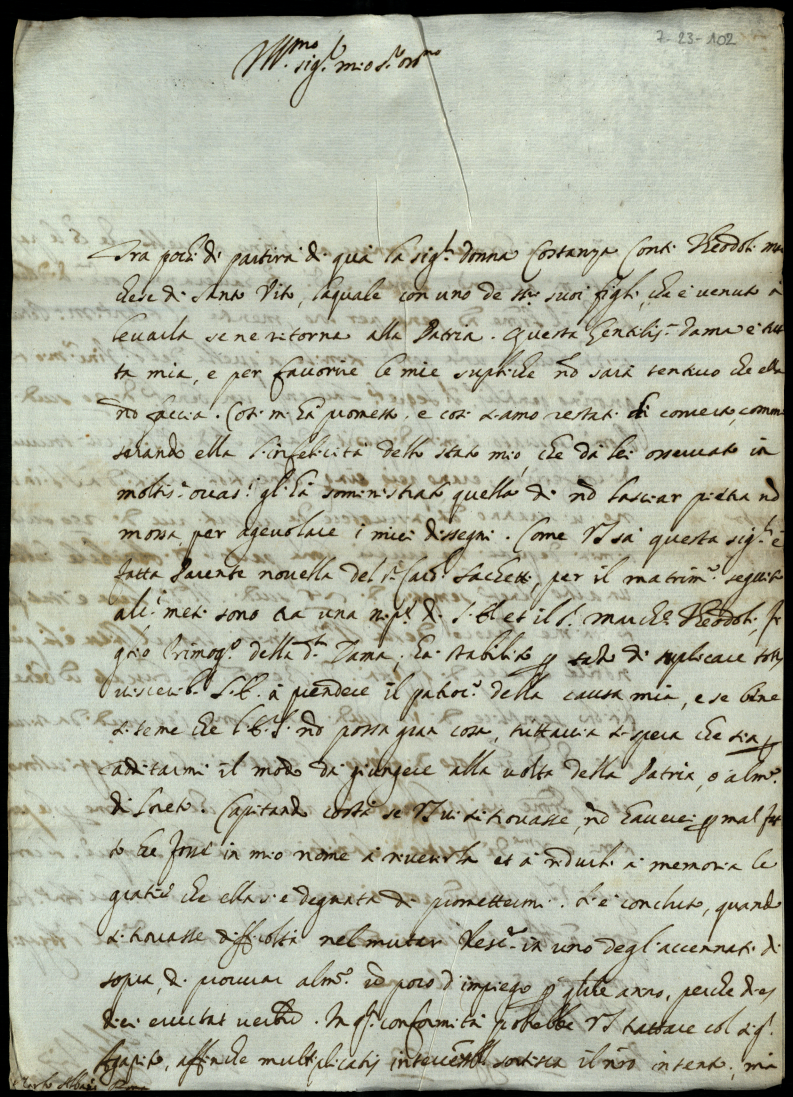 7-23-102
Ill.mo
sig.r mio S.r oss.mo
Tra pochi dì partirà di quà la sig.ra Donna Costanza Conti Theodoli mar
chese di Santo Vito, laquale con uno de sti suoi figli, che è venuto à
levarla se ne ritorna alla Patria. Questa Gentiliss.a Dama è tut
ta mia, e per favorire le mie supliche nõ sarà tentivo che ella
nõ faccia. Così mi hà promesso, e così siamo restati di concerto, commi
serando ella l'infelicità dello stato mio, che da lei osservato in
moltiss.e occas.i gli hà somministrato quella di nõ lasciar pietra nõ
mossa per agevolare i miei dissegni. Come VS sà questa sig.ra è
fatta Parente novella del S.r Card.l Sachetti, per il matrim.o seguito
alc.i mesi sono tra una nip.e di S. E. et il S.r march.e Theodoli, fi
glio Primog.o della d.a Dama, hà stabilito di suplicare
S. E. à prendere il patroc.o della causa mia, e se bene
si teme che S. E. nõ possa gran cosa, tuttavia si spera che sia p
additarmi il modo da giungere alla volta della Patria, o alm.o
di Loreto. Capitando costà se VS vi si trovasse, nõ haverei p mal fat
to che fosse in mio nome à riverirla et à ridurli à memoria le
gratie che ella si è degnata di promettermi. Si è concluso, quando
si trovasse difficoltà nel mutar Resc.o in uno degl'accennati di
sopra, di procurar alm.o un poco d'impiego p q.lche anno, perche
In q.a conformità potrebbe VS trattare col sig.r
Agapito, affinche multiplicatis intercessoribus sortisca il nõ intento, mà
Carlo Albani Roma